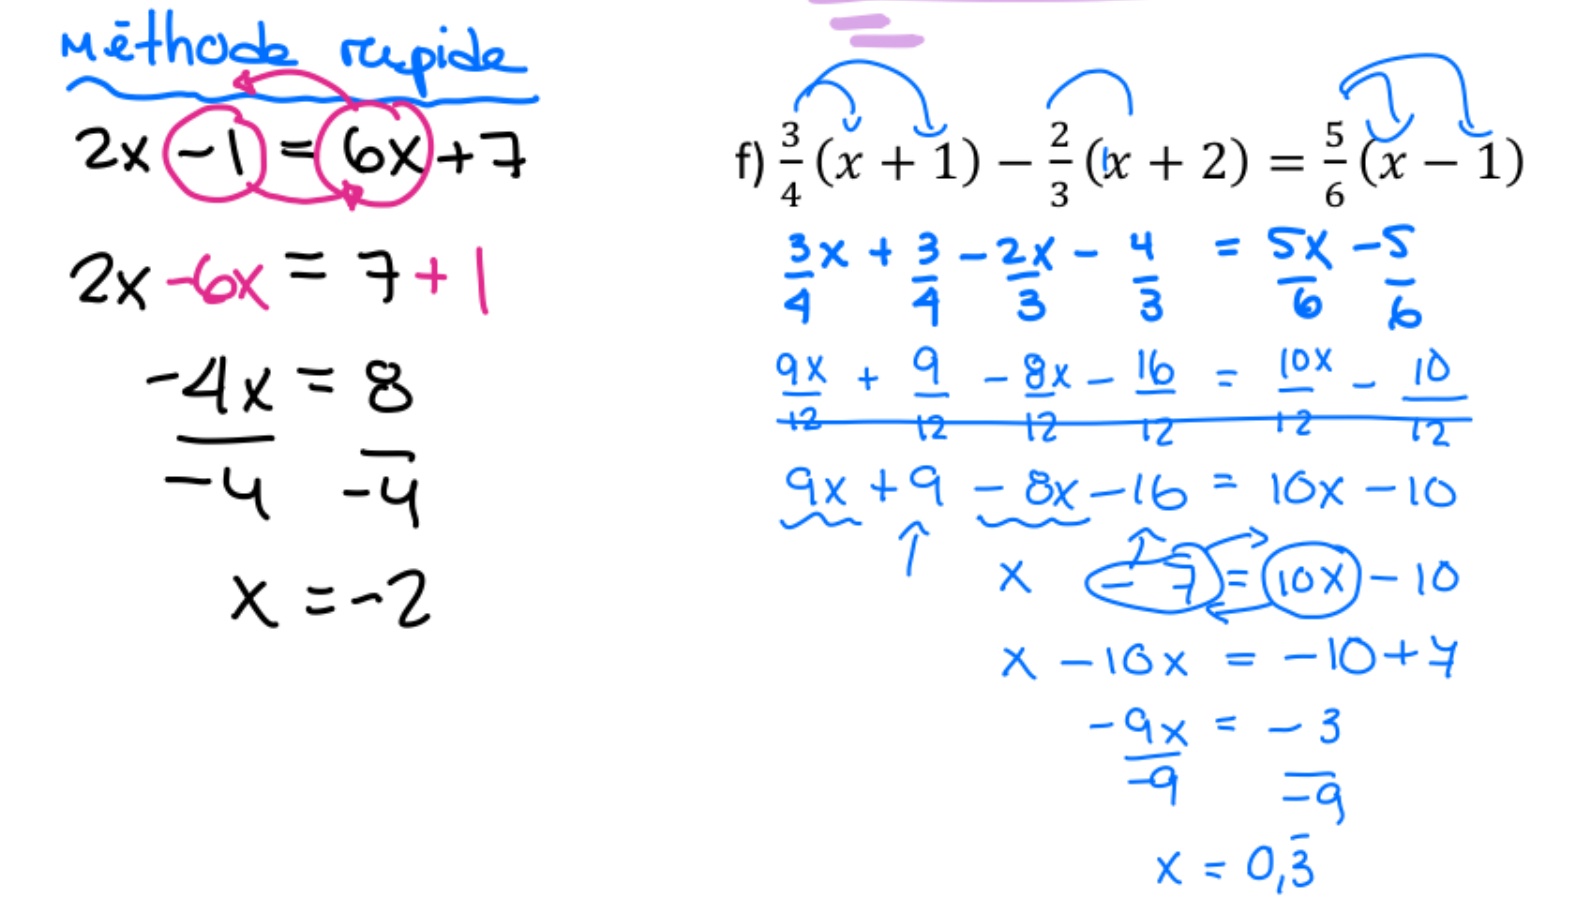 Méthode rapide
2x - 1 = 6x + 7
2x - 6x = 7 + 1
-4x = 8
-4 -4
x = -2
f) 3/4 (x + 1) − 2/3 (x + 2) = 5/6 (x − 1)
3/4 x + 3/4 - 2x/3 - 4/3 = 5x/6 - 5/6
9x/12 + 9/12 - 8x/12 - 16/12 = 10x/12 - 10/12
9x + 9 - 8x - 16 = 10x - 10
x - 7 = 10x - 10
x - 10x = -10 + 7
-9x = -3
-9 -9
x = 0,3̅